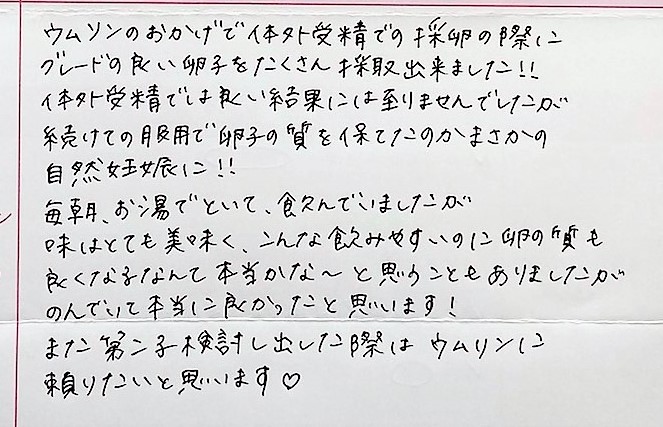 ウムリンのおかげで体外受精での採卵の際に
グレードの良い卵子をたくさん採取出来ました!!
体外受精では良い結果には至りませんでしたが
続けての服用で卵子の質を保てたのかまさかの
自然妊娠に!!
毎朝、お湯でといて、飲んでいましたが
味はとても美味く、こんな飲みやすいのに卵の質も
良くなるなんて本当かな〜と思うこともありましたが
のんでいて本当に良かったと思います!
また第二子検討し出した際はウムリンに
頼りたいと思います♡